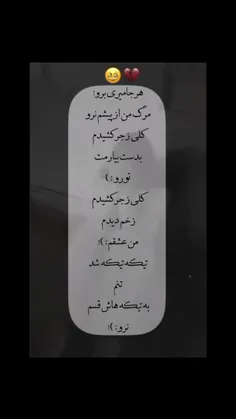 هرجا میری برو!
مرگ من از پیشم نرو
کلی زجر کشیدم
بدست بیارمت
تورو : )
کلی زجر کشیدم
زخم دیدم
من عشقم : )!
تیکه تیکه شد
تنم
به تیکه هاش قسم
نرو : )!